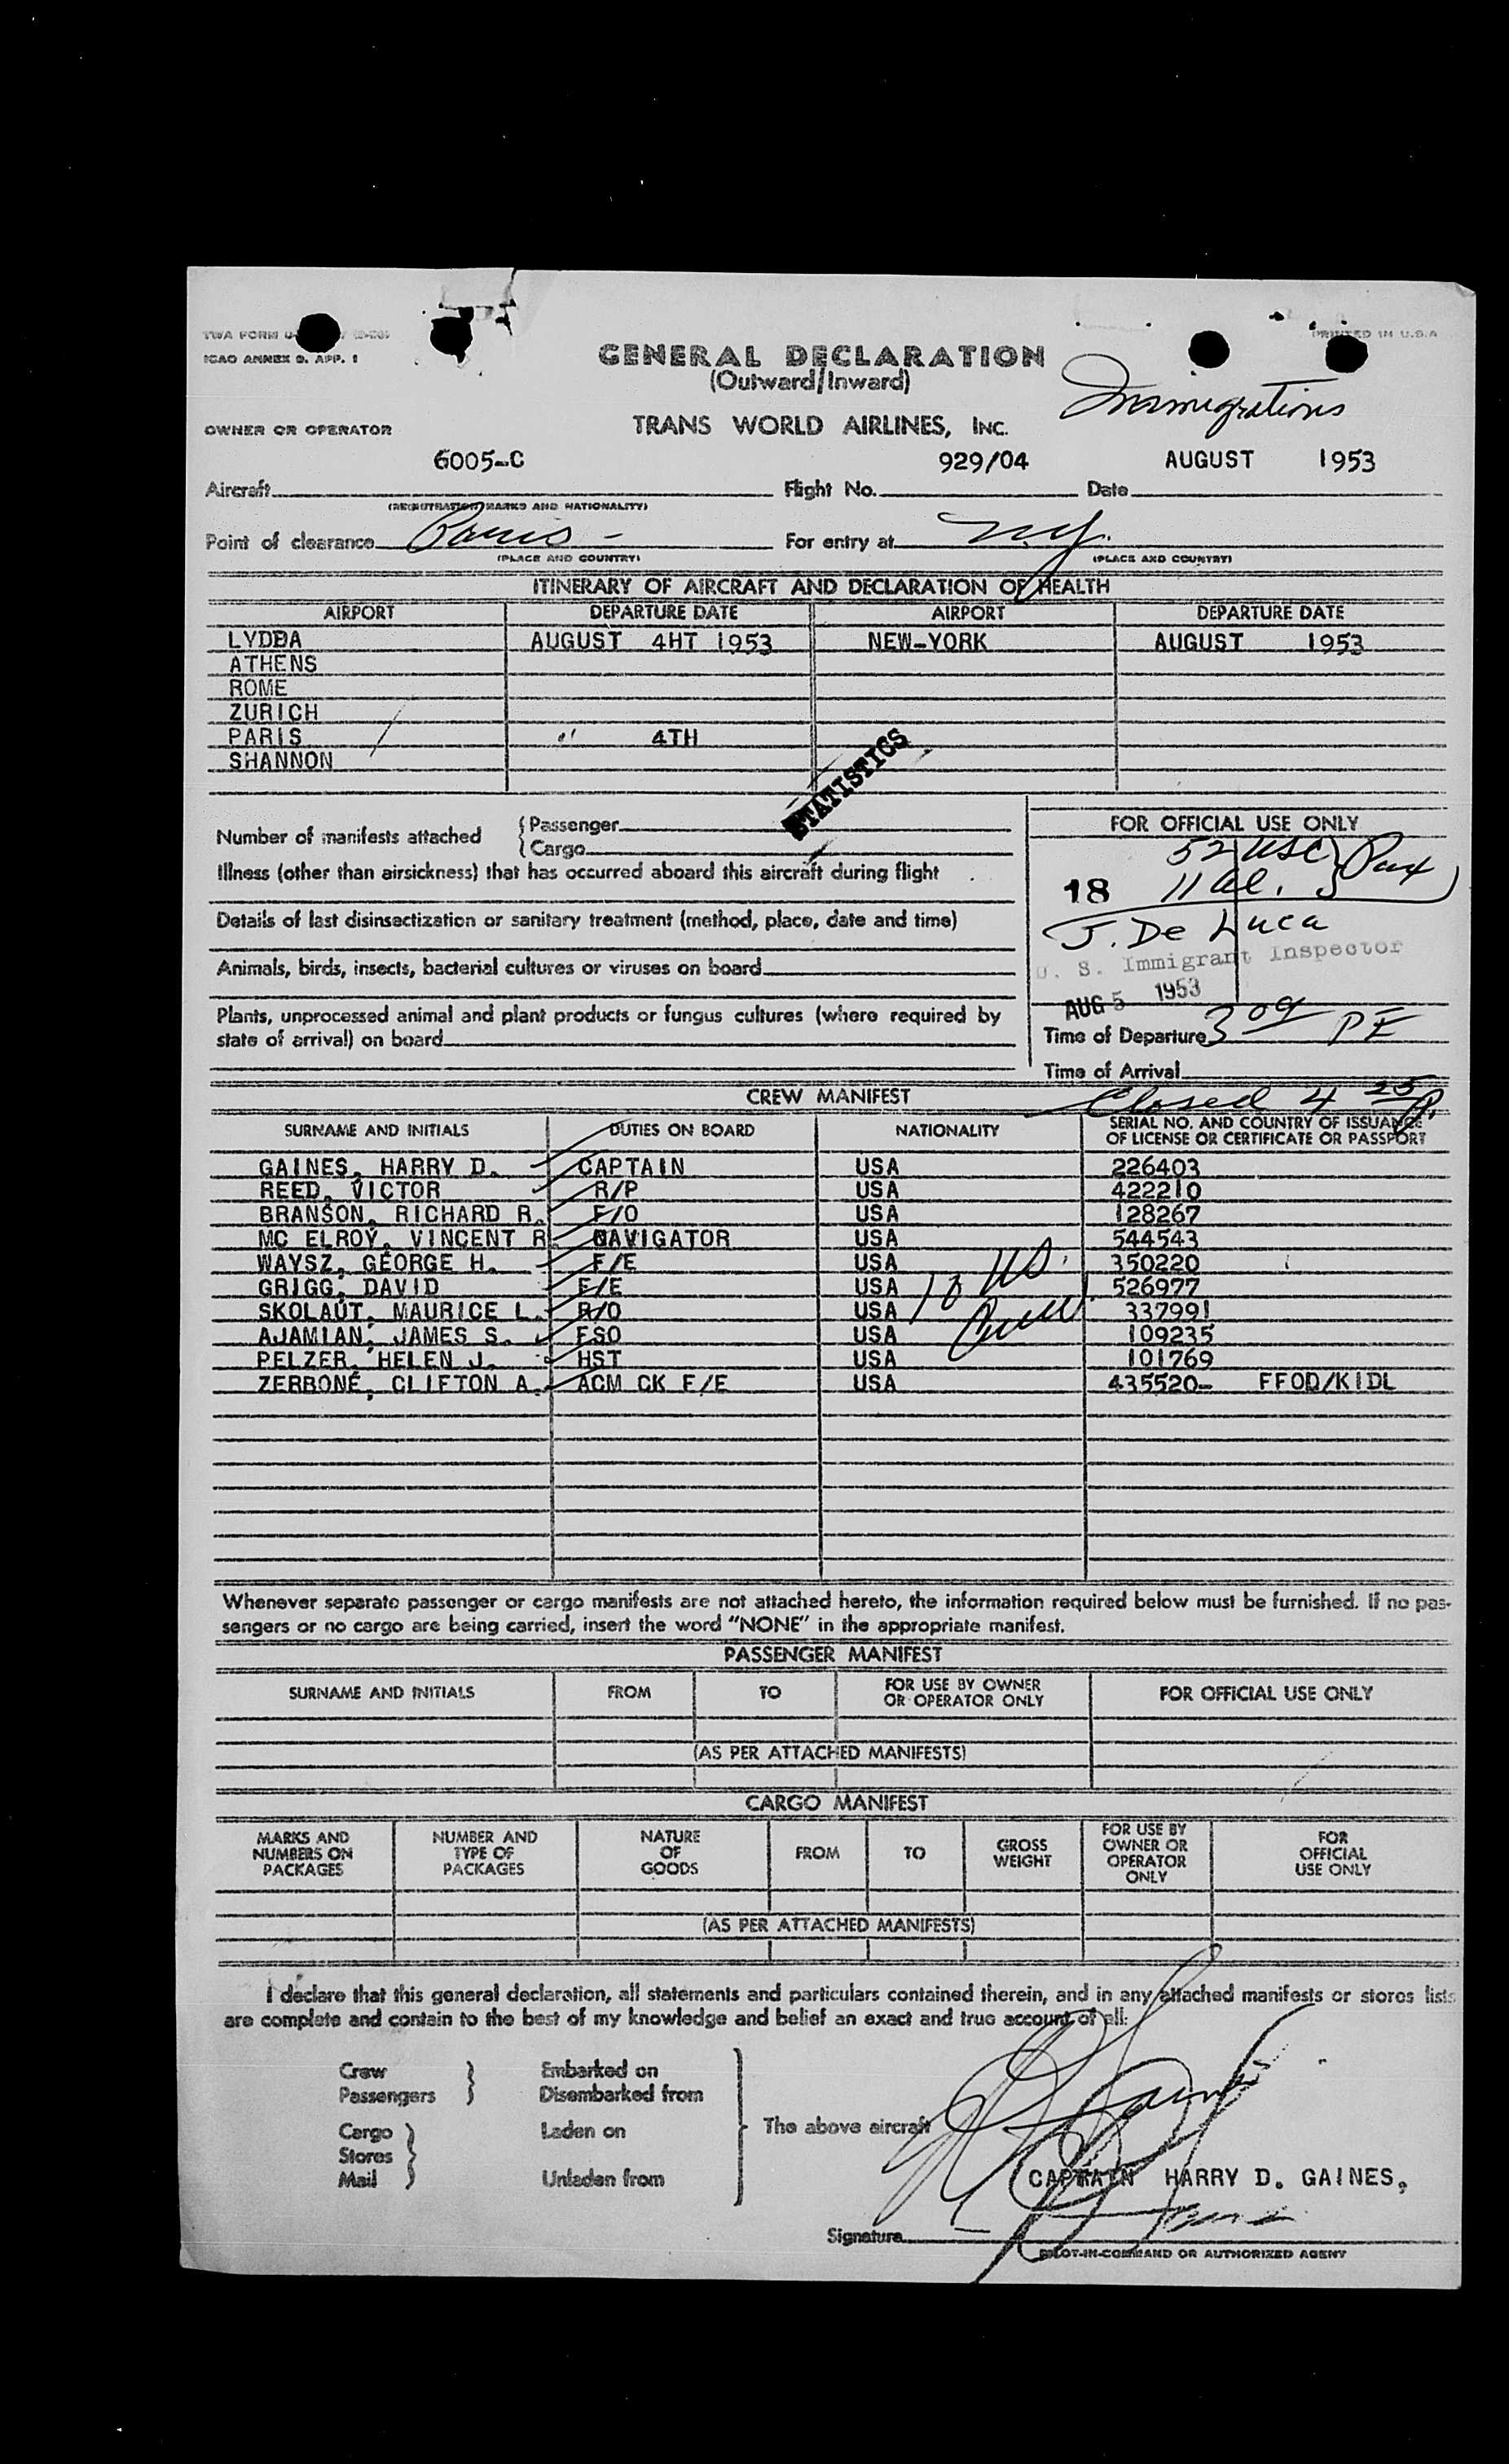 ICAO ANNEX 9. APP. 1
PRINTED IN U.S.A
GENERAL DECLARATION
(Outward/Inward)
Immigrations
OWNER OR OPERATOR TRANS WORLD AIRLINES, INC.
Aircraft 6005-C Flight No. 929/04 Date AUGUST 1953
(REGISTRATION MARKS AND NATIONALITY)
Point of clearance Paris - For entry at N.Y.
(PLACE AND COUNTRY) (PLACE AND COUNTRY)
ITINERARY OF AIRCRAFT AND DECLARATION OF HEALTH
AIRPORT DEPARTURE DATE AIRPORT DEPARTURE DATE
LYDDA AUGUST 4HT 1953 NEW-YORK AUGUST 1953
ATHENS
ROME
ZURICH
PARIS " 4TH
SHANNON
STATISTICS
Number of manifests attached { Passenger
{ Cargo
Illness (other than airsickness) that has occurred aboard this aircraft during flight
Details of last disinsectization or sanitary treatment (method, place, date and time)
Animals, birds, insects, bacterial cultures or viruses on board
Plants, unprocessed animal and plant products or fungus cultures (where required by
state of arrival) on board
FOR OFFICIAL USE ONLY
52 USC } Pax
18 11 al.
J. De Luca
U. S. Immigrant Inspector
AUG 5 1953
Time of Departure 3 09 PE
Time of Arrival
Closed 4 25 P.
CREW MANIFEST
SURNAME AND INITIALS DUTIES ON BOARD NATIONALITY SERIAL NO. AND COUNTRY OF ISSUANCE
OF LICENSE OR CERTIFICATE OR PASSPORT
GAINES, HARRY D. CAPTAIN USA 226403
REED, VICTOR R/P USA 422210
BRANSON, RICHARD R. F/O USA 128267
MC ELROY, VINCENT R. NAVIGATOR USA 544543
WAYSZ, GEORGE H. F/E USA 350220
GRIGG, DAVID F/E USA 526977
SKOLAUT, MAURICE L. R/O USA 337991
AJAMIAN, JAMES S. FSO USA 109235
PELZER, HELEN J. HST USA 101769
ZERBONE, CLIFTON A. ACM CK F/E USA 435520- FFOD/KIDL
10 US.
Crew
Whenever separate passenger or cargo manifests are not attached hereto, the information required below must be furnished. If no pas-
sengers or no cargo are being carried, insert the word "NONE" in the appropriate manifest.
PASSENGER MANIFEST
SURNAME AND INITIALS FROM TO FOR USE BY OWNER
OR OPERATOR ONLY FOR OFFICIAL USE ONLY
(AS PER ATTACHED MANIFESTS)
CARGO MANIFEST
MARKS AND
NUMBERS ON
PACKAGES NUMBER AND
TYPE OF
PACKAGES NATURE
OF
GOODS FROM TO GROSS
WEIGHT FOR USE BY
OWNER OR
OPERATOR
ONLY FOR
OFFICIAL
USE ONLY
(AS PER ATTACHED MANIFESTS)
I declare that this general declaration, all statements and particulars contained therein, and in any attached manifests or stores lists
are complete and contain to the best of my knowledge and belief an exact and true account of all:
Crew } Embarked on
Passengers Disembarked from
Cargo } Laden on The above aircraft
Stores
Mail Unladen from
CAPTAIN HARRY D. GAINES,
Signature
PILOT-IN-COMMAND OR AUTHORIZED AGENT